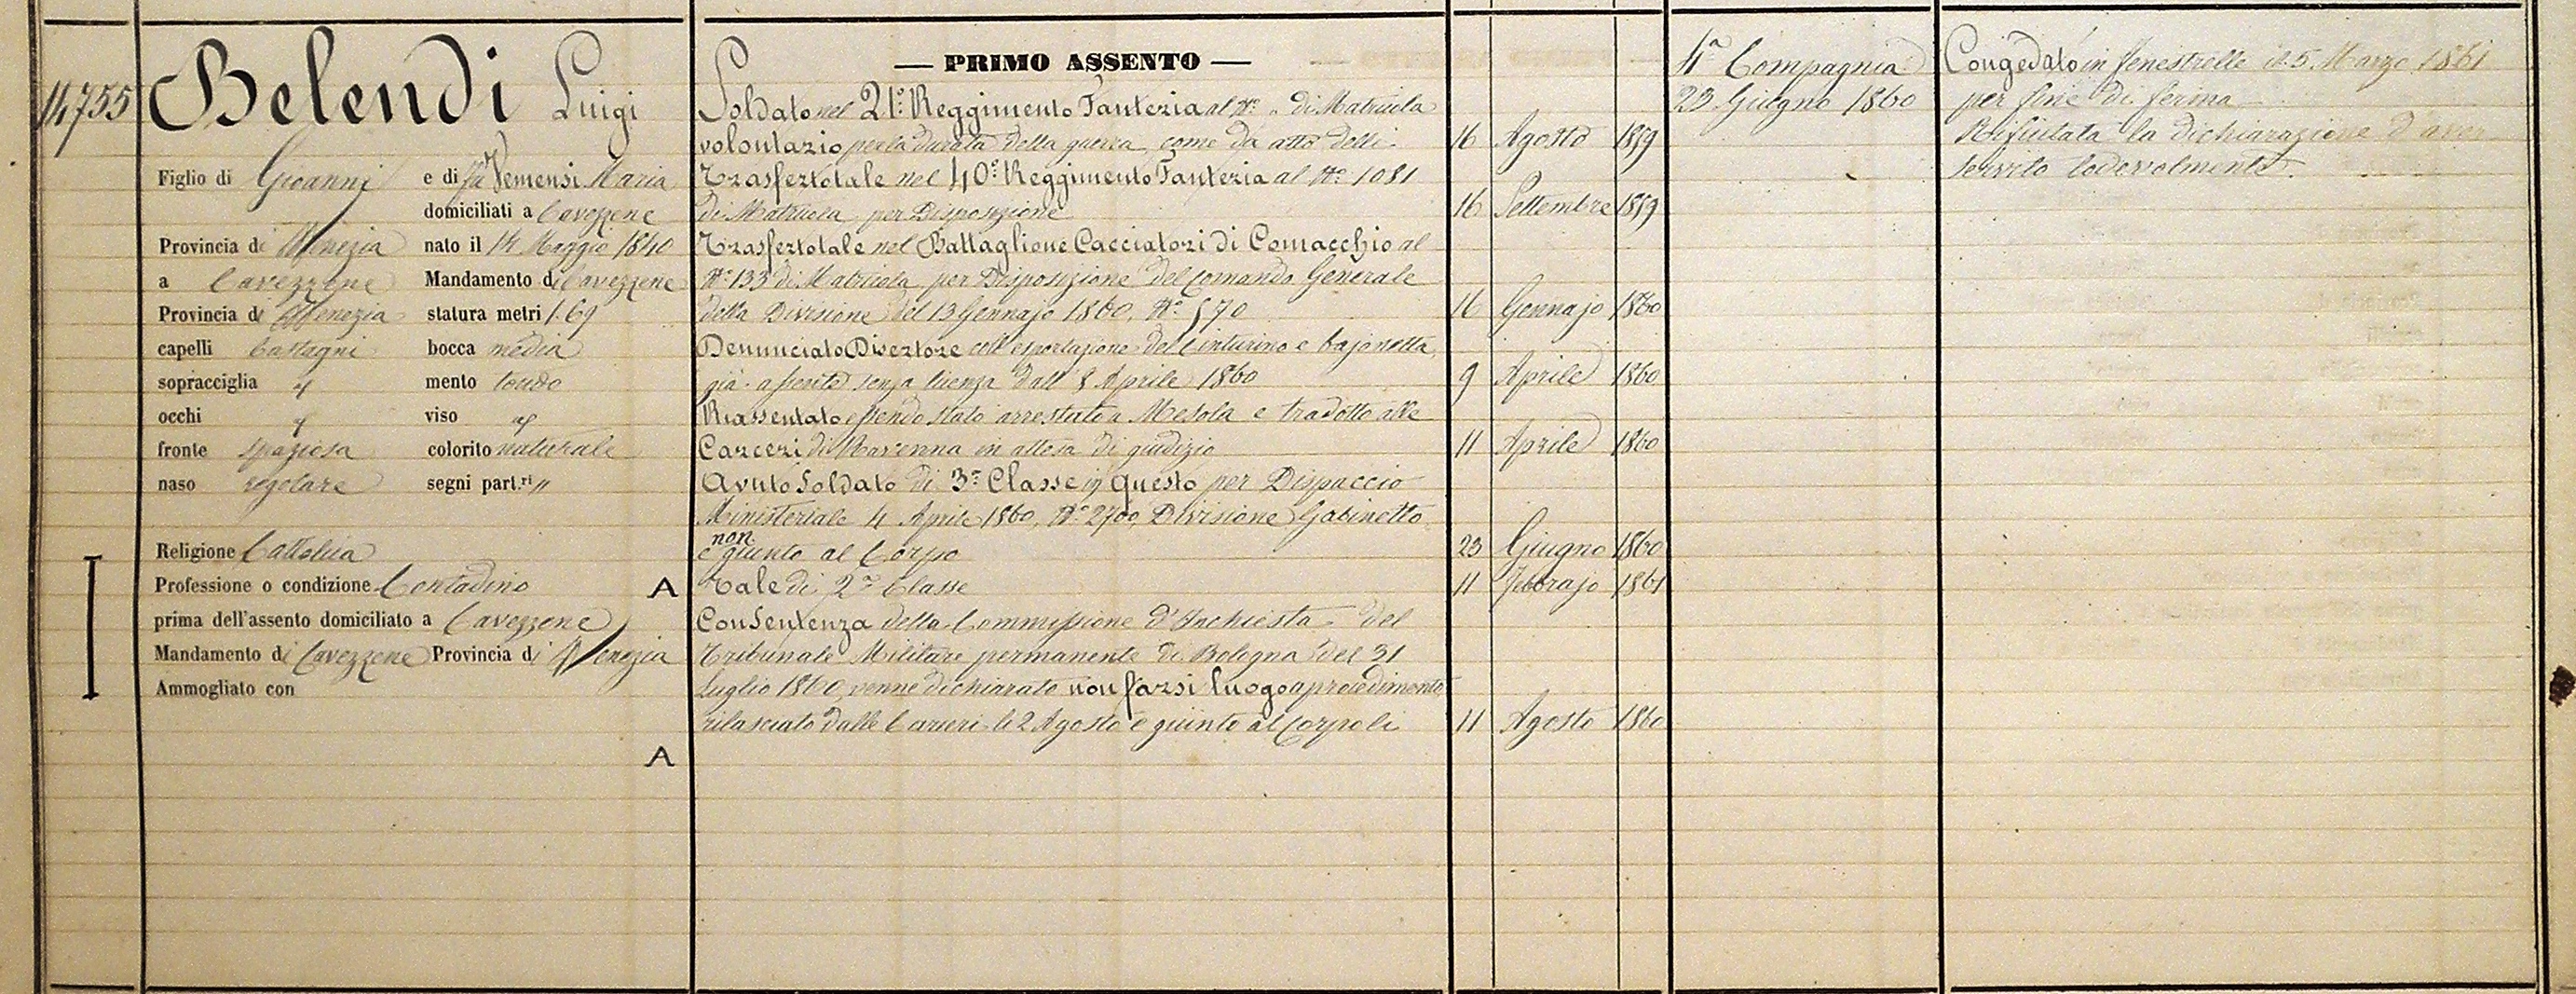 14755 Belendi Luigi
Figlio di Gioanni e di fu Vemensi Maria
domiciliati a Cavezzene
Provincia di Venezia nato il 14 Maggio 1840
a Cavezzene Mandamento di Cavezzene
Provincia di Venezia statura metri 1.69
capelli Castagni bocca media
sopracciglia " mento tondo
occhi " viso "
fronte spaziosa colorito naturale
naso regolare segni part.ri "
Religione Cattolica
Professione o condizione Contadino
prima dell'assento domiciliato a Cavezzene
Mandamento di Cavezzene Provincia di Venezia
Ammogliato con
A
A
— PRIMO ASSENTO —
Soldato nel 21° Reggimento Fanteria al N° " di Matricola
volontario per la durata della guerra come da atto delli 16 Agosto 1859
Trasfertotale nel 40° Reggimento Fanteria al N° 1081
di Matricola per Disposizione 16 Settembre 1859
Trasfertotale nel Battaglione Cacciatori di Comacchio al
N° 133 di Matricola per Disposizione del Comando Generale
della Divisione del 13 Gennajo 1860, N° 570 16 Gennajo 1860
Denunciato Disertore coll'esportazione del Cinturino e bajonetta
già assente senza licenza dall' 8 Aprile 1860 9 Aprile 1860
Riassentato essendo stato arrestato a Mesola e tradotto alle
Carceri di Ravenna in attesa di giudizio 11 Aprile 1860
Avuto Soldato di 3a Classe in questo per Dispaccio
Ministeriale 4 Aprile 1860, N° 2700, Divisione Gabinetto
e non giunto al Corpo 23 Giugno 1860
Tale di 2a Classe 11 Febbrajo 1861
Con Sentenza della Commissione d'Inchiesta del
Tribunale Militare permanente di Bologna del 31
Luglio 1860 venne dichiarato non farsi luogo a procedimento
rilasciato dalle Carceri li 2 Agosto e giunto al Corpo li 11 Agosto 1860
4a Compagnia
23 Giugno 1860
Congedato in Fenestrelle il 5 Marzo 1861
per fine di ferma
Rifiutata la dichiarazione d'aver
servito lodevolmente.